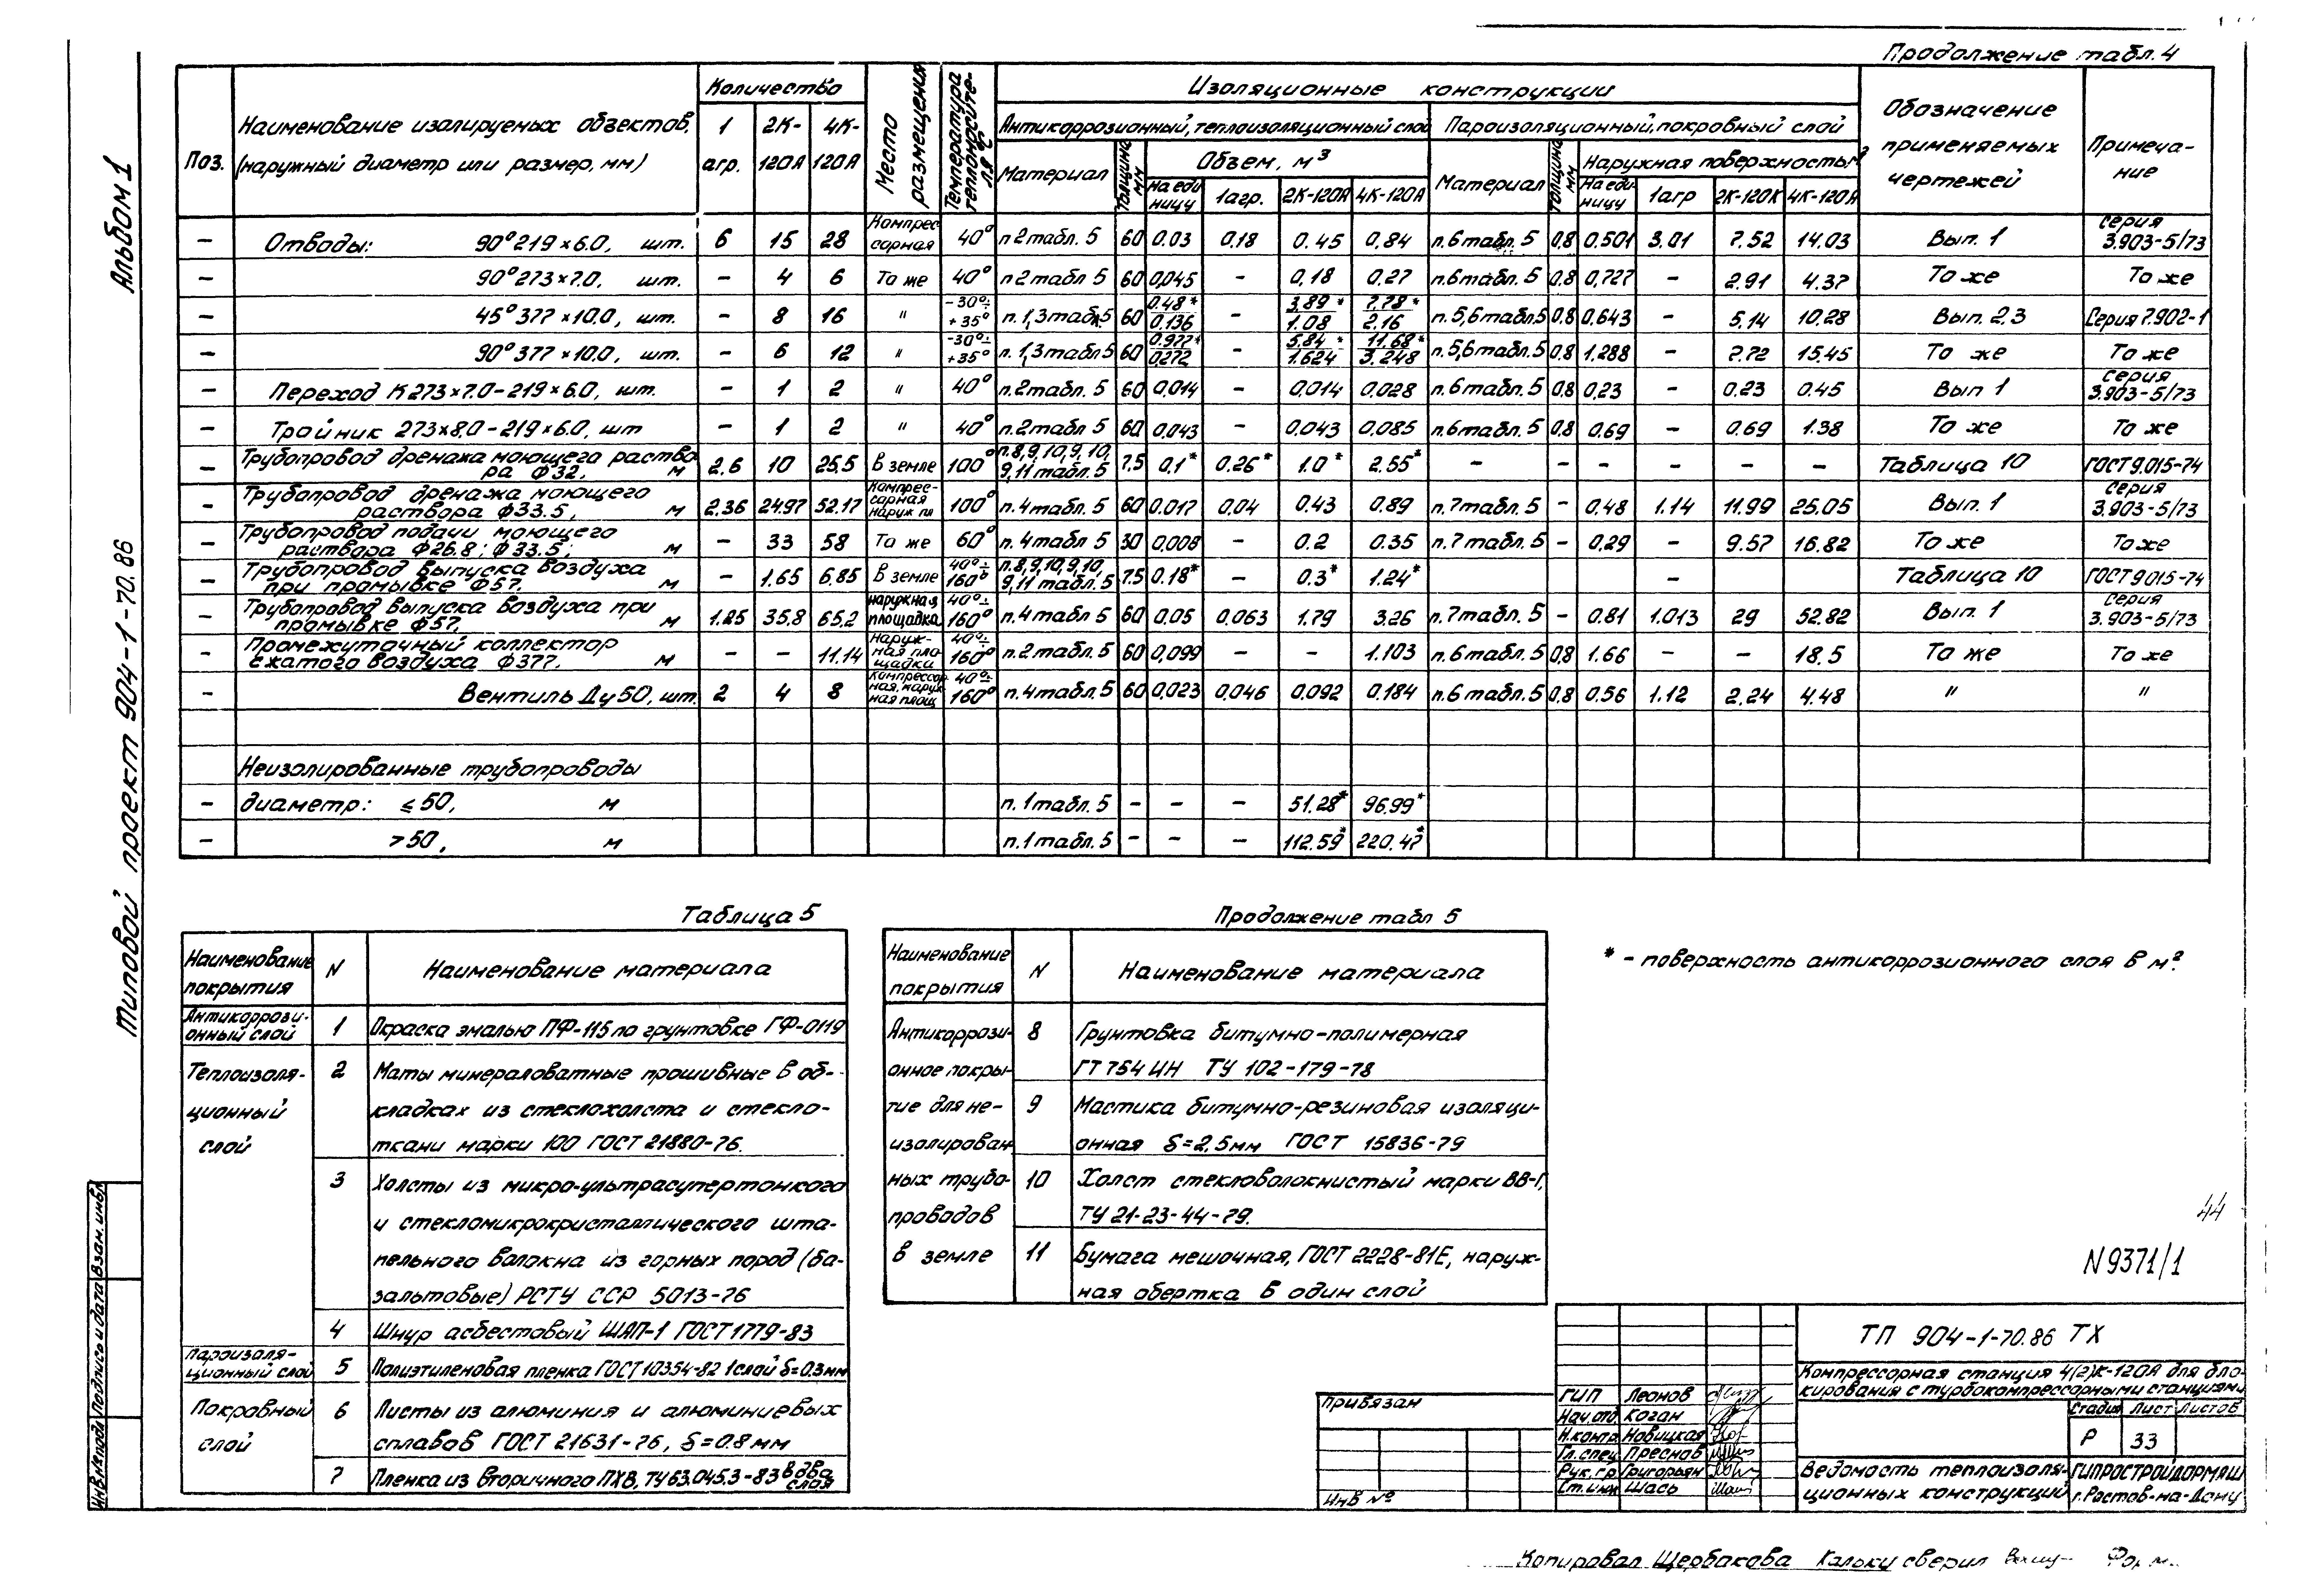 Продолжение табл. 4
Альбом 1
Типовой проект 904-1-70.86
Поз.
Наименование изолируемых объектов,
(наружный диаметр или размер, мм)
Количество
1 агр. 2К-120А 4К-120А
Место размещения
Температура теплоносителя °C
Изоляционные конструкции
Антикоррозионный, теплоизоляционный слой
Пароизоляционный, покровный слой
Материал Толщина мм Объем, м³
На единицу 1агр. 2К-120А 4К-120А
Материал Толщина мм Наружная поверхность м²
На единицу 1агр 2К-120К 4К-120А
Обозначение применяемых чертежей
Примечание
– Отводы: 90° 219×6.0, шт. 6 15 28 Компрессорная 40° п 2 табл. 5 60 0.03 0.18 0.45 0.84 п.6 табл. 5 0,8 0.501 3.01 7.52 14.03 Вып. 1 Серия 3.903-5/73
– 90° 273×7.0, шт. – 4 6 То же 40° п 2 табл 5 60 0,045 – 0.18 0.27 п.6 табл. 5 0.8 0,727 – 2.91 4.37 То же То же
– 45° 377×10.0, шт. – 8 16 " -30°÷ +35° п. 1,3 табл. 5 60 0.48*/0.136 – 3.89*/1.08 7.78*/2.16 п.5,6 табл.5 0.8 0.643 – 5.14 10.28 Вып. 2,3 Серия 7.902-1
– 90° 377×10.0, шт. – 6 12 " -30°÷ +35° п. 1,3 табл 5 60 0.977*/0.272 – 5.84*/1.624 11.68*/3.248 п.5,6 табл.5 0.8 1.288 – 7.72 15.45 То же То же
– Переход К 273×7.0-219×6.0, шт. – 1 2 " 40° п.2 табл. 5 60 0.014 – 0.014 0.028 п.6 табл. 5 0.8 0.23 – 0.23 0.45 Вып 1 Серия 3.903-5/73
– Тройник 273×8.0-219×6.0, шт – 1 2 " 40° п.2 табл. 5 60 0.043 – 0.043 0.085 п.6 табл. 5 0,8 0.69 – 0.69 1.38 То же То же
– Трубопровод дренажа моющего раствора ф32, м 2.6 10 25.5 В земле 100° п.8,9,10,9,10, 9,11 табл. 5 7.5 0.1* 0.26* 1.0* 2.55* – – – – – – Таблица 10 ГОСТ 9.015-74
– Трубопровод дренажа моющего раствора ф33.5, м 2.36 24.97 52.17 Компрессорная наруж пл 100° п.4 табл. 5 60 0.017 0.04 0.43 0.89 п.7 табл. 5 – 0.48 1.14 11.99 25.05 Вып. 1 Серия 3.903-5/73
– Трубопровод подачи моющего раствора ф26.8; ф33.5; м – 33 58 То же 60° п. 4 табл 5 30 0.008 – 0.2 0.35 п.7 табл. 5 – 0.29 – 9.57 16.82 То же То же
– Трубопровод выпуска воздуха при промывке ф57. м – 1.65 6.85 В земле 40°÷ 160° п.8,9,10,9,10, 9,11 табл. 5 7.5 0.18* – 0.3* 1.24* – Таблица 10 ГОСТ 9015-74
– Трубопровод выпуска воздуха при промывке ф57. м 1.25 35.8 65.2 наружная площадка 40°÷ 160° п.4 табл. 5 60 0.05 0.063 1.79 3.26 п.7 табл. 5 – 0.81 1.013 29 52.82 Вып. 1 Серия 3.903-5/73
– Промежуточный коллектор сжатого воздуха ф377. м – – 11.14 Наружная площадки 40°÷ 160° п.2 табл. 5 60 0,099 – – 1.103 п.6 табл. 5 0,8 1.66 – – 18.5 То же То же
– Вентиль Ду 50, шт. 2 4 8 Компрессорная, наружная площ 40°÷ 160° п.4 табл. 5 60 0,023 0,046 0.092 0.184 п.6 табл. 5 0.8 0.56 1.12 2.24 4.48 " "
Неизолированные трубопроводы
– диаметр: ≤ 50, м п. 1 табл. 5 – – – 51.28* 96.99*
– > 50, м п.1 табл. 5 – – – 112.59* 220.47*
Таблица 5
Наименование покрытия N Наименование материала
Антикоррозионный слой 1 Окраска эмалью ПФ-115 по грунтовке ГФ-0119
Теплоизоляционный слой 2 Маты минераловатные прошивные в об-
кладках из стеклохолста и стекло-
ткани марки 100 ГОСТ 21880-76.
3 Холсты из микро-ультрасупертонкого
и стекломикрокристаллического шта-
пельного волокна из горных пород (ба-
зальтовые) РСТУ ССР 5013-76
4 Шнур асбестовый ШАП-1 ГОСТ 1779-83
Пароизоляционный слой 5 Полиэтиленовая пленка ГОСТ 10354-82 1 слой δ=0.3мм
Покровный слой 6 Листы из алюминия и алюминиевых
сплавов ГОСТ 21631-76, δ=0.8 мм
7 Пленка из вторичного ПХВ, ТУ 63.045.3-83 в два слоя
Продолжение табл 5
Наименование покрытия N Наименование материала
Антикоррозионное покрытие для неизолированных трубопроводов в земле
8 Грунтовка битумно-полимерная
ГТ 754 ИН ТУ 102-179-78
9 Мастика битумно-резиновая изоляци-
онная δ=2,5мм ГОСТ 15836-79
10 Холст стекловолокнистый марки ВВ-Г,
ТУ 21-23-44-79.
11 Бумага мешочная, ГОСТ 2228-81Е, наруж-
ная обертка в один слой
* - поверхность антикоррозионного слоя в м².
44
N 9371/1
ТП 904-1-70.86 ТХ
Компрессорная станция 4(2)К-120А для бло-
кирования с турбокомпрессорными станциями
Стадия Лист Листов
Р 33
Ведомость теплоизоля-
ционных конструкций
ГИПРОСТРОЙДОРМАШ
г. Ростов-на-Дону
ГИП Леонов
Нач.отд Коган
Н.контр. Новицкая
Гл.спец Преснов
Рук.гр Григорьян
Ст.инж Шась
Привязан
Инв №
Инв.№ подл. Подпись и дата Взам. инв.
Копировал Щербакова Кальку сверил